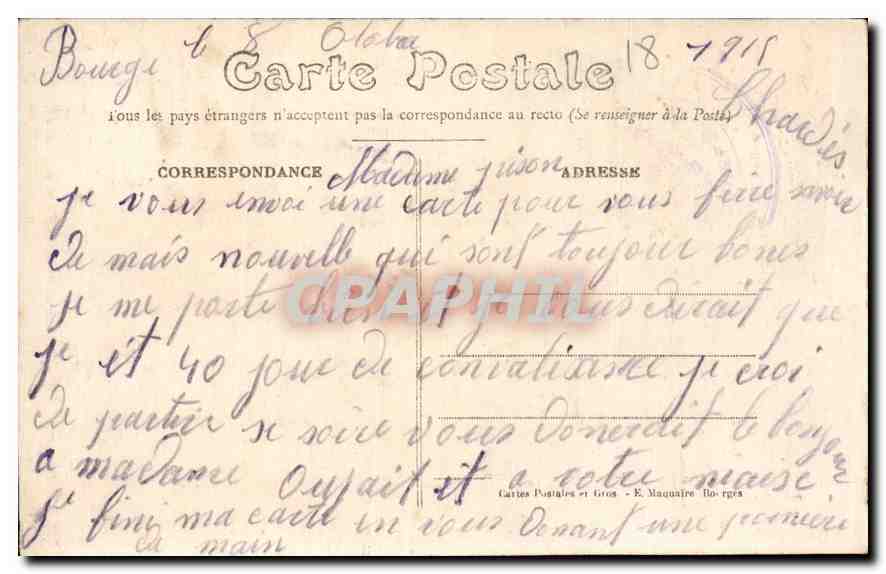 Bourge le 8 Otobre 18 1915
Carte Postale
Tous les pays étrangers n'acceptent pas la correspondance au recto (Se renseigner à la Poste)
CORRESPONDANCE
ADRESSE
Madame
je vous envoi une carte pour vous faire savoir
de mais nouvelle qui sont toujour bones
je me porte bies et je vous dirait que
je et 40 jour de convaliasance je croi
de partire se soire vous donerait le bonjour
a madame et a votre
je fini ma carte en vous donant une
de main
CPAPHIL
Cartes Postales et Gros. - E. Maquaire Bourges